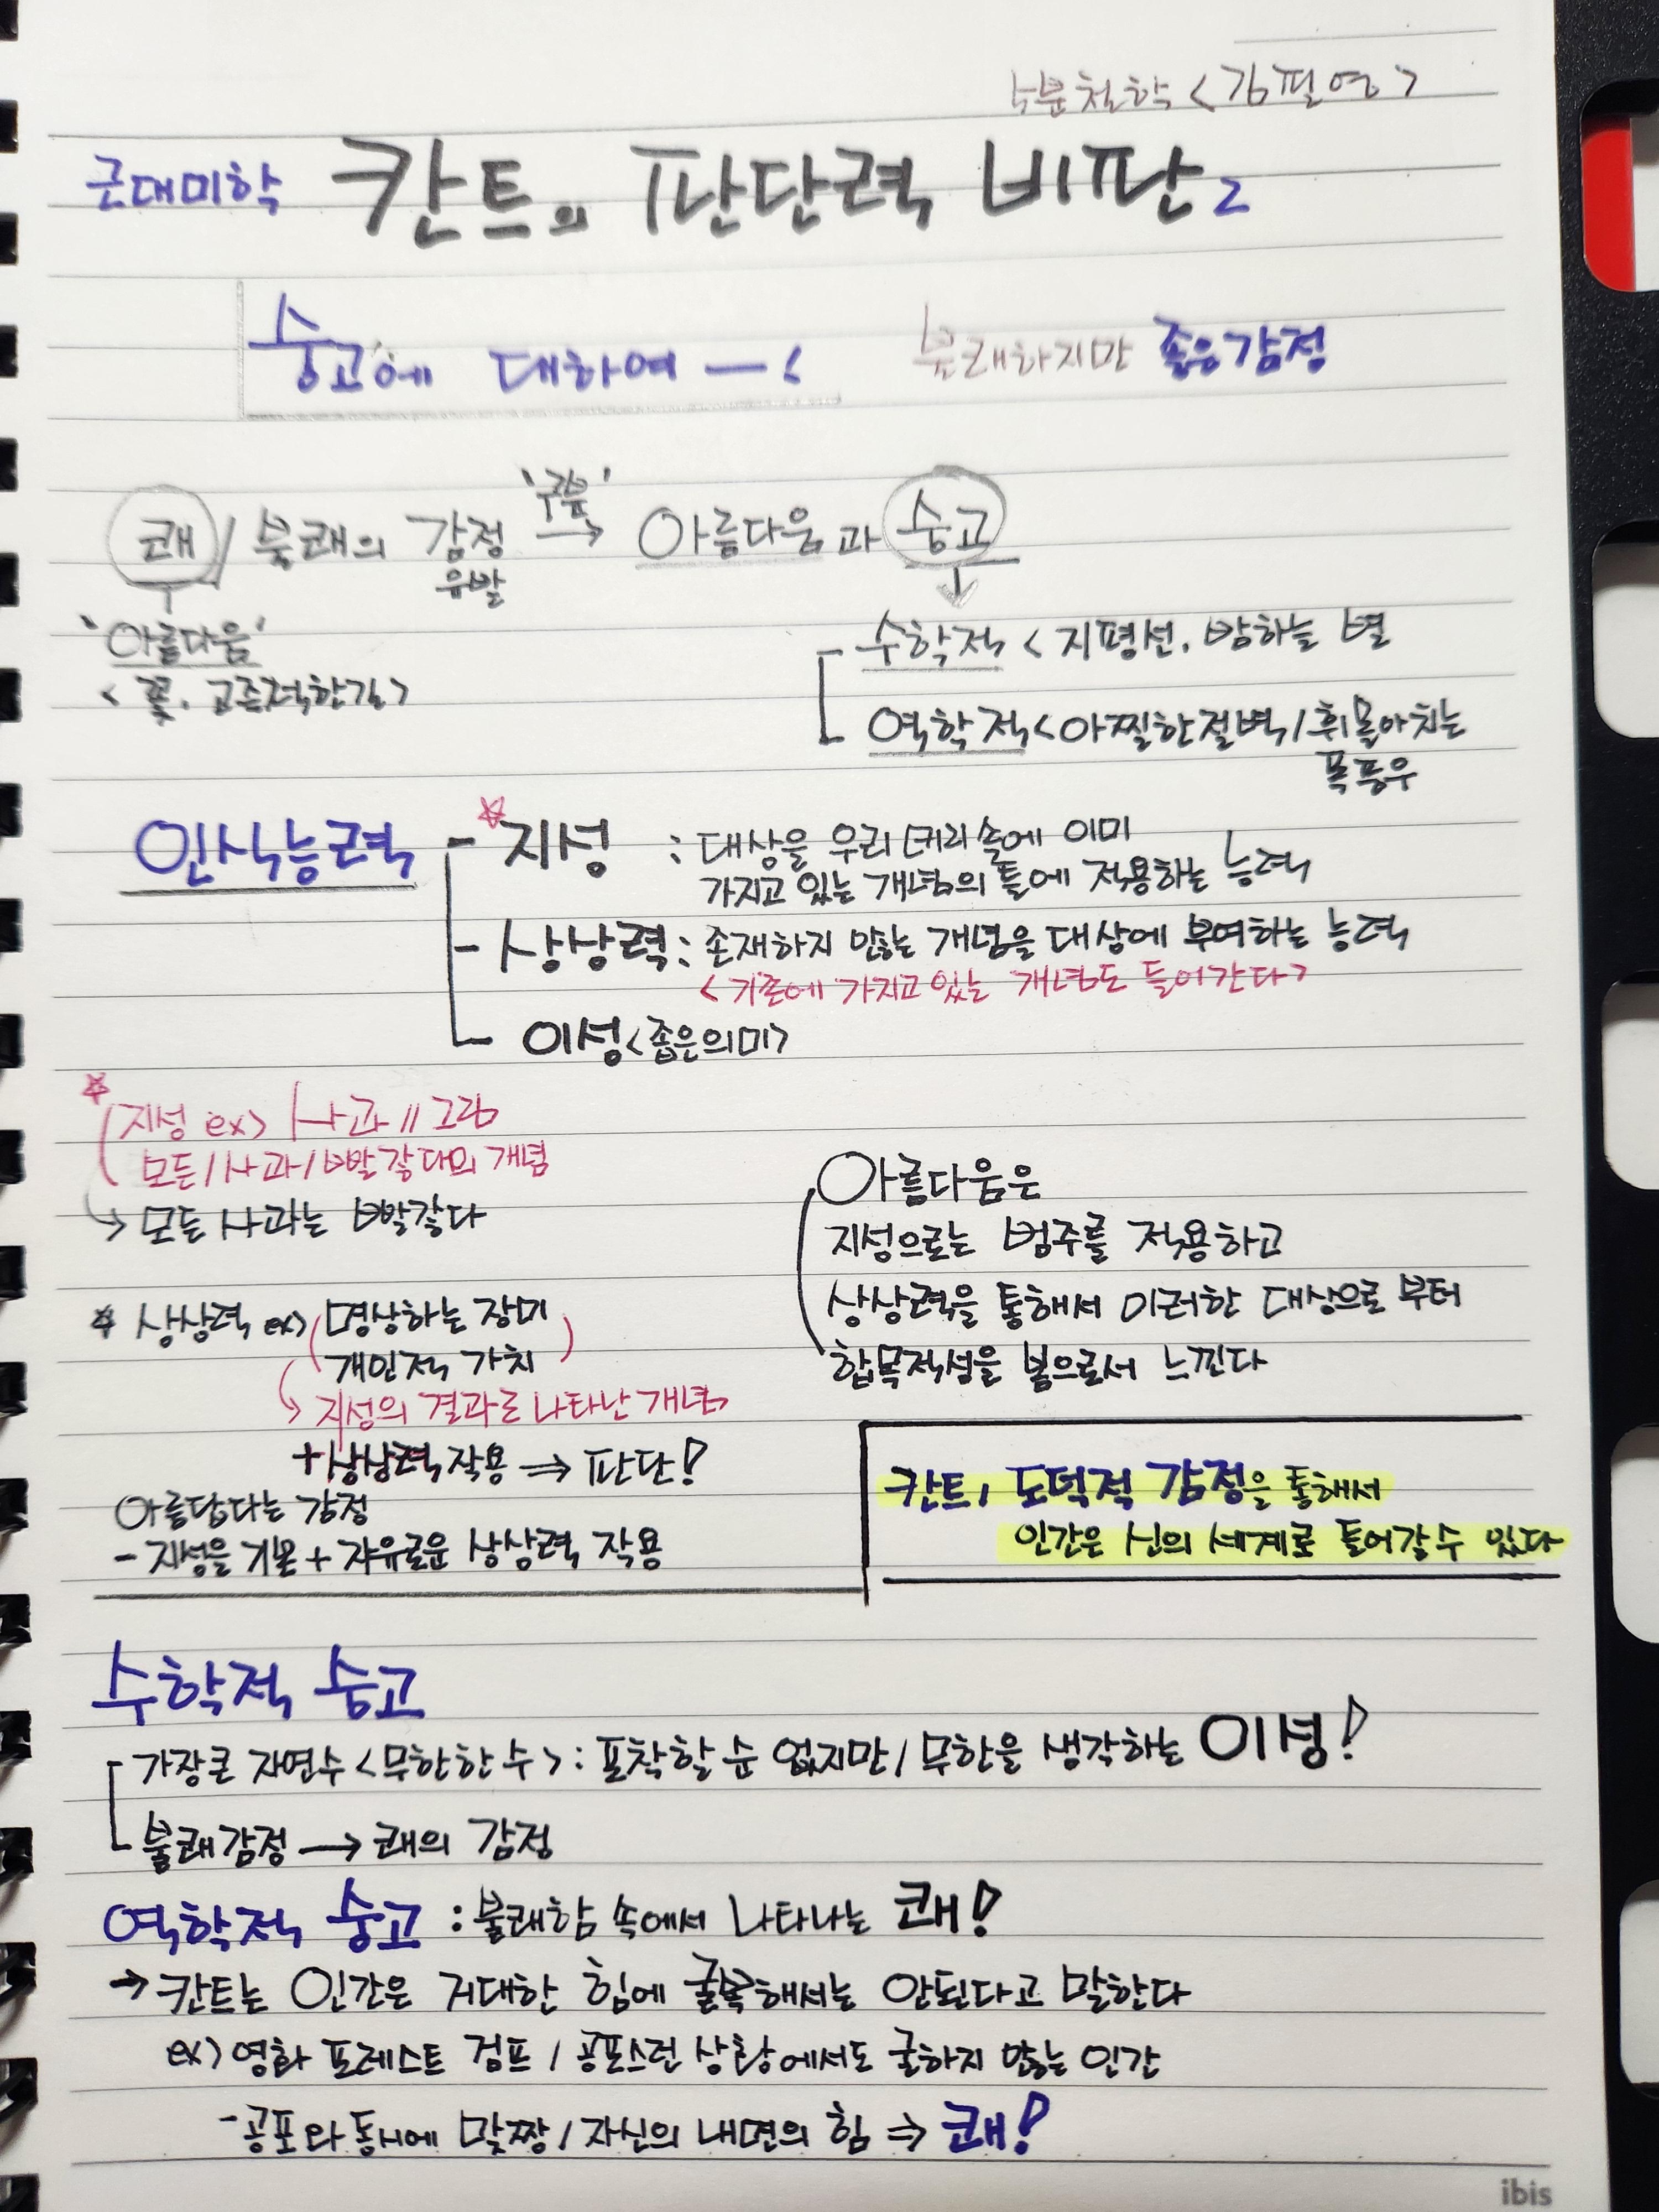 5분철학 <김필영>
근대미학 칸트의 판단력 비판 2
숭고에 대하여 —< 불쾌하지만 좋은감정
쾌 / 불쾌의 감정 '구분' → 아름다움과 숭고
유발
'아름다움'
<꽃, 고즈넉한길>
수학적 < 지평선, 밤하늘 별
역학적 < 아찔한절벽 / 휘몰아치는
폭풍우
인식능력 - ☆지성 : 대상을 우리 머리속에 이미
가지고 있는 개념의 틀에 적용하는 능력
- 상상력 : 존재하지 않는 개념을 대상에 부여하는 능력
<기존에 가지고 있는 개념도 들어간다>
이성<좁은의미>
☆ 지성 ex> 사과 // 그림
모든 / 사과 / 빨갛다의 개념
→ 모든 사과는 빨갛다
☆ 상상력 ex> 명상하는 장미
개인적 가치
지성의 결과로 나타난 개념
+ 상상력 작용 ⇒ 판단!
아름답다는 감정
- 지성을 기본 + 자유로운 상상력 작용
아름다움은
지성으로는 범주를 적용하고
상상력을 통해서 이러한 대상으로 부터
합목적성을 봄으로서 느낀다
칸트, 도덕적 감정을 통해서
인간은 신의 세계로 들어갈 수 있다
수학적 숭고
가장큰 자연수 <무한한 수> : 포착할 순 없지만 / 무한을 생각하는 이성!
불쾌감정 → 쾌의 감정
역학적 숭고 : 불쾌함 속에서 나타나는 쾌!
→ 칸트는 인간은 거대한 힘에 굴복해서는 안된다고 말한다
ex) 영화 포레스트 검프 / 공포스런 상황에서도 굴하지 않는 인간
- 공포와 동시에 맞짱 / 자신의 내면의 힘 ⇒ 쾌!
ibis